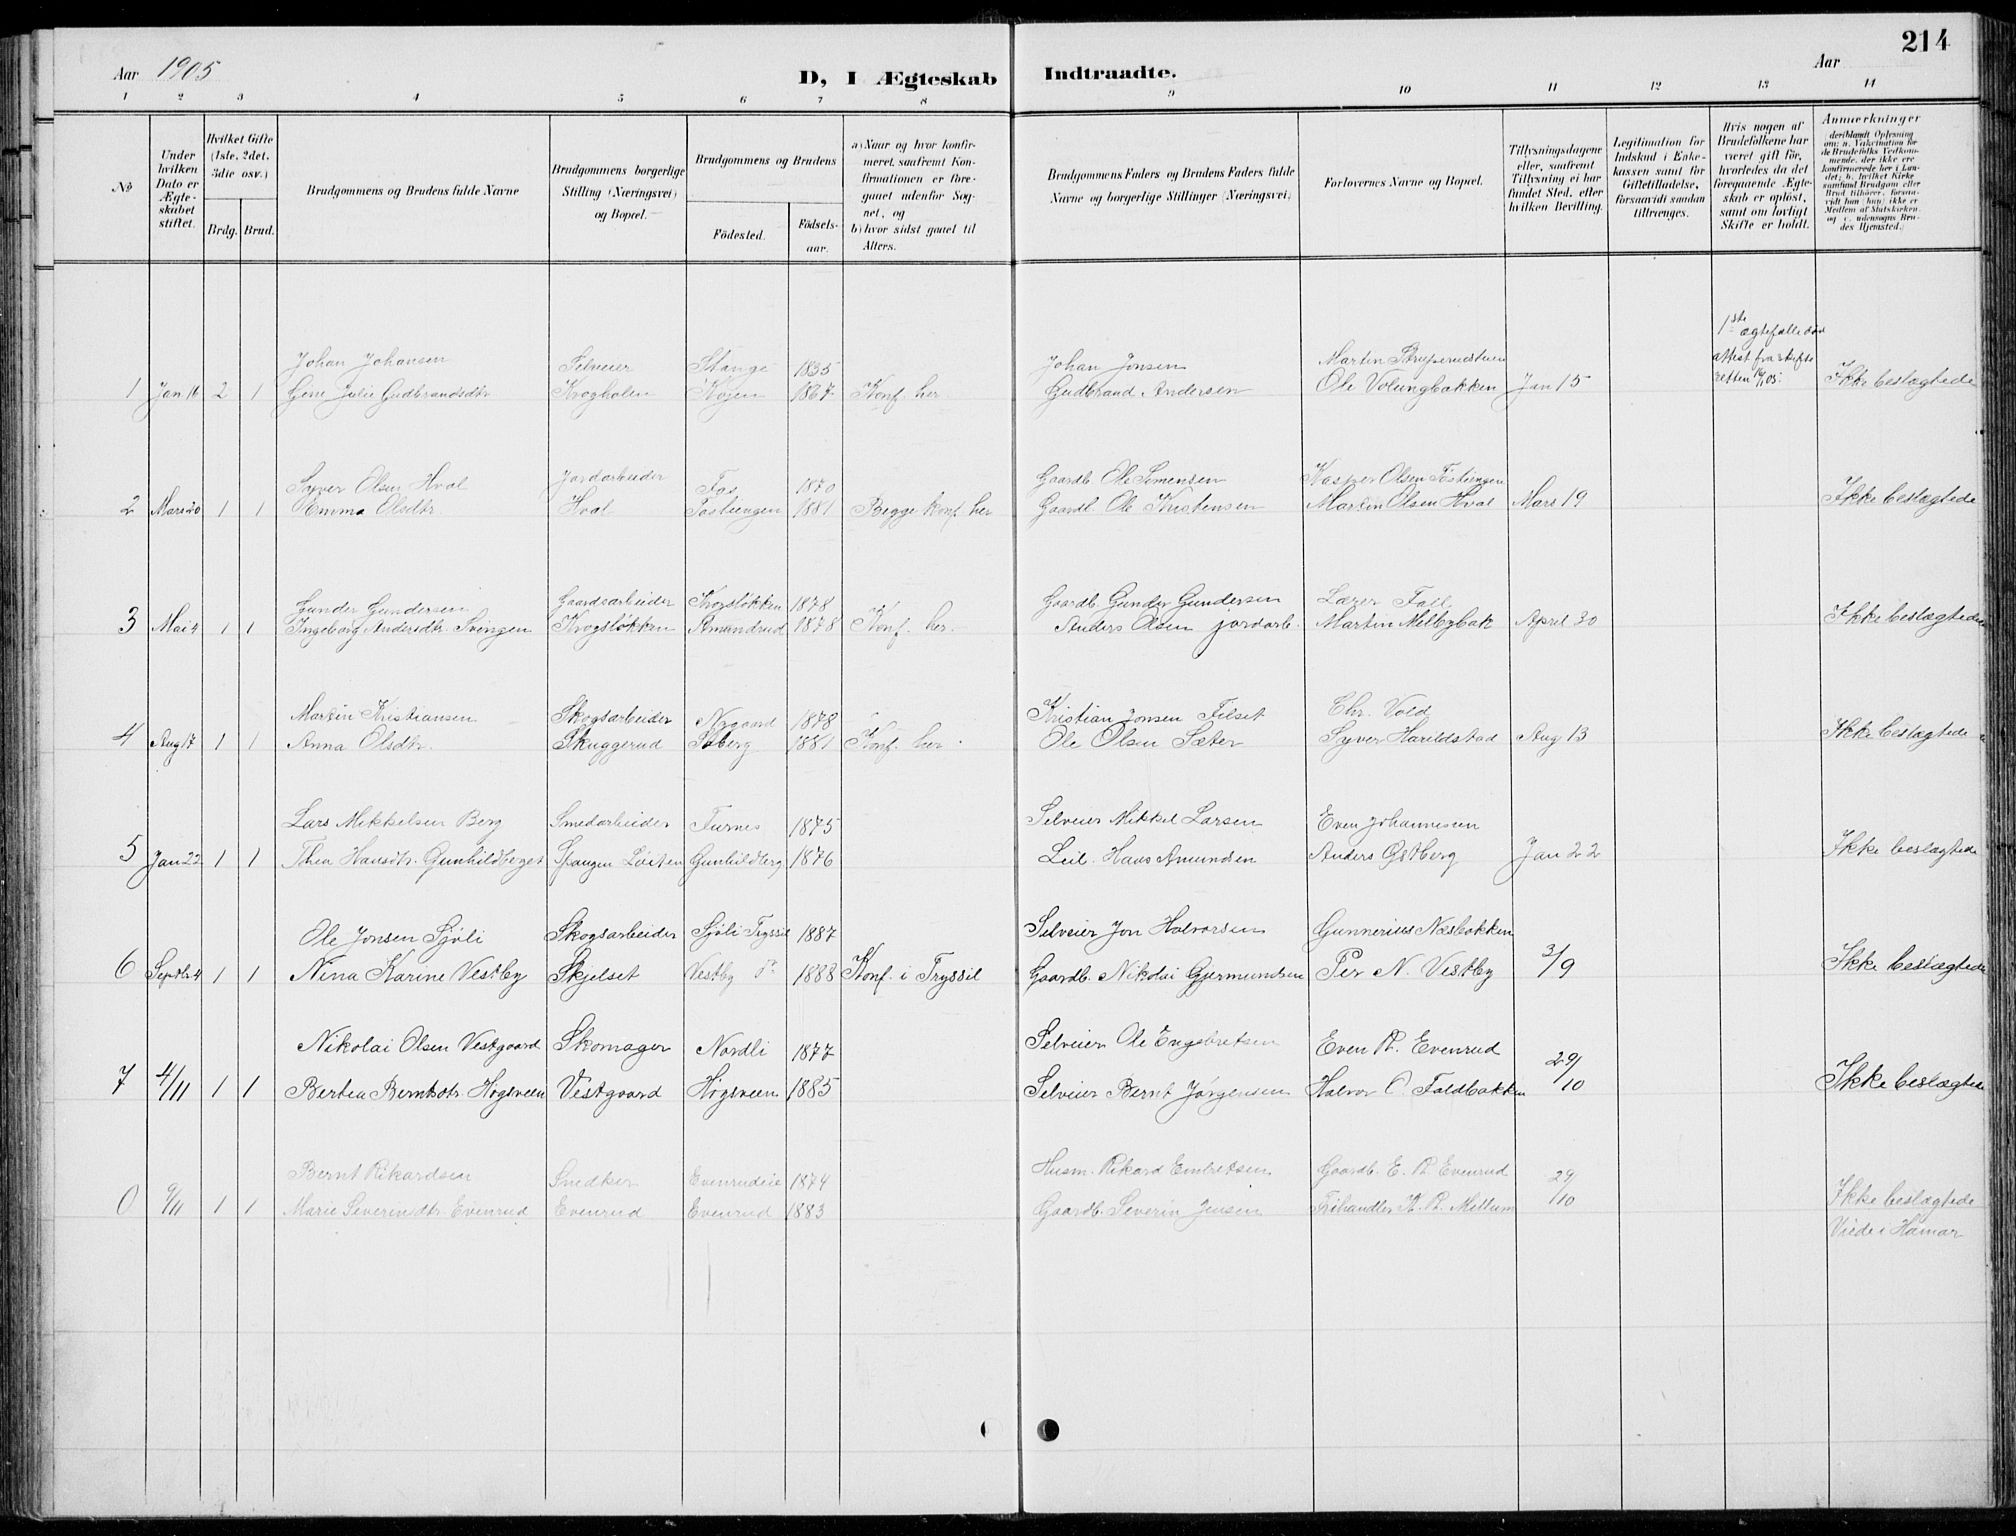 214
Aar 1905
D, I Ægteskab
Indtraadte.
Aar
1 2 3 4 5 6 7 8 9 10 11 12 13 14
No
Under hvilken Dato er Ægteskabet stiftet.
Hvilket Gifte (1ste, 2det, 3die osv.)
Brdg. Brud.
Brudgommens og Brudens fulde Navne
Brudgommens borgerlige Stilling (Næringsvei) og Bopæl.
Brudgommens og Brudens
Födested.
Födsels-aar.
a) Naar og hvor konfirmeret, saafremt Konfirmationen er foregaaet udenfor Sognet, og
b) hvor sidst gaaet til Alters.
Brudgommens Faders og Brudens Faders fulde Navne og borgerlige Stillinger (Næringsvei)
Forlovernes Navne og Bopæl.
Tillysningsdagene eller, saafremt Tillysning ei har fundet Sted, efter hvilken Bevilling.
Legitimation for Indskud i Enkekassen samt for Giftetilladelse, forsaavidt saadan tiltrænges.
Hvis nogen af Brudefolkene har været gift för, hvorledes da det foregaaende Ægteskab er oplöst, samt om lovligt Skifte er holdt.
Anmerkninger
Johan Johansen Selveier Stange 1835 Johan Jonsen Martin 1ste ægtefælle död attest fra skifteretten
1 Jan 16 2 1 Gine Julie Gudbrandsdtr Krogholen Kojen 1867 Konf. her Gudbrand Andersen Ole Volungbakken Jan 15 Ikke beslægtede
Syver Olsen Hval Jordarbeider 1870 Gaardb. Ole Simensen Kasper Olsen Töstiengen
2 Mars 20 1 1 Emma Olsdtr. Hval Töstiengen 1881 Begge konf. her Gaardb. Ole Kristensen Martin Olsen Hval Mars 19 Ikke beslægtede
Gunder Gundersen Gaardsarbeider Krogsløkken 1878 Gaardb. Gunder Gundersen
3 Mai 4 1 1 Ingeborg Andersdtr. Svingen Krogsløkken Amundrud 1878 Konf. her. Anders Olsen jordarb. Martin Melbybak April 30 Ikke beslægtede
Martin Kristiansen Skogsarbeider Nygaard 1878 Kristian Jonsen Filset Chr. Vold
4 Aug 17 1 1 Anna Olsdtr. Skuggerud 1881 Konf. her. Ole Olsen Sæter Syver Harildstad Aug 13 Ikke beslægtede
Lars Mikkelsen Berg Smedarbeider Furnes 1875 Selveier Mikkel Larsen Even Johannesen
5 Jan 22 1 1 Thea Hansdtr. Gunhildberget Spangen Löiten Gunhildberg 1876 Leil. Hans Amundsen Anders Østberg Jan 22 Ikke beslægtede
Ole Jonsen Sjöli Skogsarbeider Sjöli Tryssil 1887 Selveier Jon Halvorsen Gunnerius Næsbakken
6 Septbr 4 1 1 Nina Karine Vestby Skjelset Vestby do 1883 Konf. i Tryssil Gaardb. Nikolai Gjermundsen Per N. Vestby 3/9 Ikke beslægtede
Nikolai Olsen Vestgaard Skomager Nordli 1877 Selveier Ole Engebretsen Even R. Evenrud
7 4/11 1 1 Bertea Berntsdtr. Høgsveen Vestgaard Høgsveen 1885 Selveier Bernt Jørgensen Halvor O. Faldbakken 29/10 Ikke beslægtede
Bernt Rikardsen Snedker Evenrudeie 1874 Husm. Rikard Embretsen Gaardb. E. R. Evenrud
0 9/11 1 1 Marie Severindtr. Evenrud Evenrud Evenrud 1883 Gaardb. Severin Jensen R. Mellum 29/10 Ikke beslægtede
Viede i Hamar